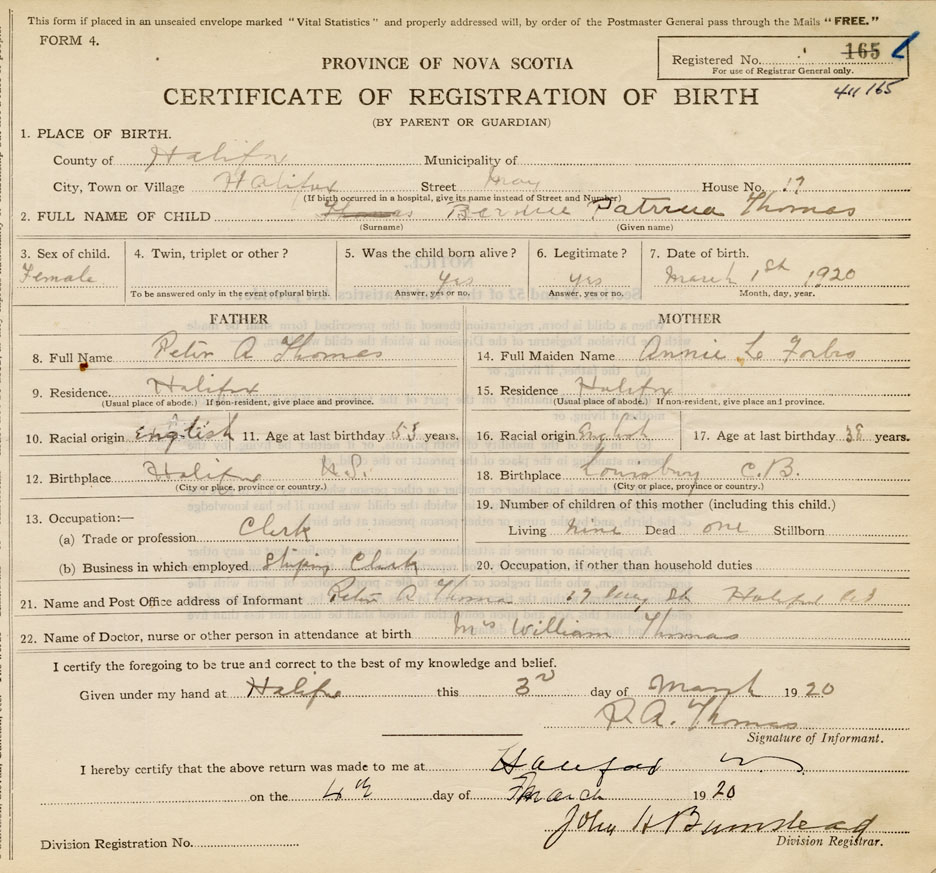 This form if placed in an unsealed envelope marked "Vital Statistics" and properly addressed will, by order of the Postmaster General pass through the Mails "FREE."
FORM 4.
Registered No. 165
For use of Registrar General only.
165
PROVINCE OF NOVA SCOTIA
CERTIFICATE OF REGISTRATION OF BIRTH
(BY PARENT OR GUARDIAN)
1. PLACE OF BIRTH.
County of Halifax Municipality of
City, Town or Village Halifax Street May House No. 17
(If birth occurred in a hospital, give its name instead of Street and Number)
2. FULL NAME OF CHILD Thomas Patricia Thomas
(Surname) (Given name)
3. Sex of child. 4. Twin, triplet or other? 5. Was the child born alive? 6. Legitimate? 7. Date of birth.
Female Yes Yes March 1st 1920
To be answered only in the event of plural birth. Answer, yes or no. Answer, yes or no. Month, day, year.
FATHER MOTHER
8. Full Name Peter A Thomas 14. Full Maiden Name Annie L Forbs
9. Residence. Halifax 15. Residence Halifax
(Usual place of abode.) If non-resident, give place and province. (Usual place of abode.) If non-resident, give place and province.
10. Racial origin English 11. Age at last birthday 53 years. 16. Racial origin English 17. Age at last birthday 38 years.
12. Birthplace Halifax N.S. 18. Birthplace Louisburg C.B.
(City or place, province or country.) (City or place, province or country.)
19. Number of children of this mother (including this child.)
13. Occupation:—
(a) Trade or profession Clerk Living nine Dead one Stillborn
(b) Business in which employed Shiping Clerk 20. Occupation, if other than household duties
21. Name and Post Office address of Informant Peter A Thomas 17 May St Halifax
22. Name of Doctor, nurse or other person in attendance at birth Mrs William Thomas
I certify the foregoing to be true and correct to the best of my knowledge and belief.
Given under my hand at Halifax this 3rd day of March 1920
P.A. Thomas
Signature of Informant.
I hereby certify that the above return was made to me at Halifax
on the 4th day of March 1920
John H Bumstead
Division Registration No. Division Registrar.